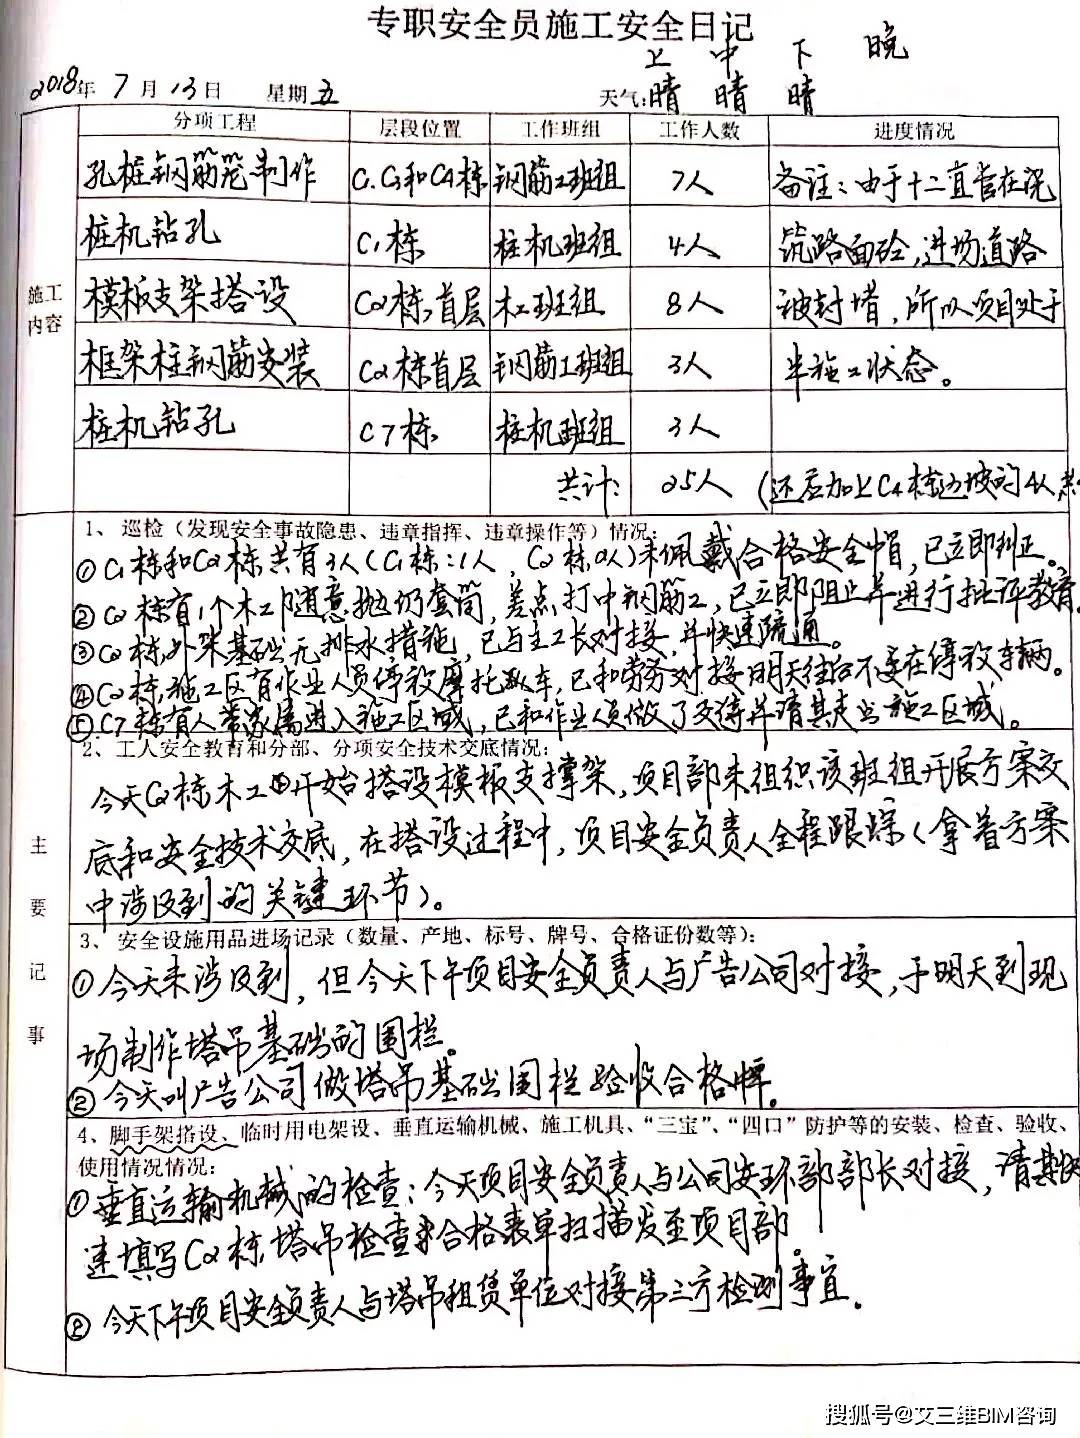 专职安全员施工安全日记
上 中 下 晚
2018年 7月 13日 星期五 天气:晴 晴 晴
分项工程 层段位置 工作班组 工作人数 进度情况
施工内容
孔桩钢筋笼制作 C1.C3和C4栋 钢筋工班组 7人 备注:由于十二直管在浇
桩机钻孔 C1栋 桩机班组 4人 筑路面砼,进场道路
模板支架搭设 C2栋,首层 木工班组 8人 被封堵,所以项目处于
框架柱钢筋安装 C2栋首层 钢筋工班组 3人 半施工状态。
桩机钻孔 C7栋 桩机班组 3人
共计: 25人 (还应加上C4栋边坡的4人
主要记事
1、巡检(发现安全事故隐患、违章指挥、违章操作等)情况:
①C1栋和C2栋共有3人(C1栋:1人,C2栋2人)未佩戴合格安全帽,已立即纠正。
②C2栋有1个木工随意抛仍套筒,差点打中钢筋工,已立即阻止并进行批评教育
③C2栋外架基础无排水措施,已与主工长对接,并快速疏通。
④C2栋施工区有作业人员停放摩托车,已和劳务对接明天往后不要在停放车辆。
⑤C7栋有人带家属进入施工区域,已和作业人员做了交待并请其走出施工区域。
2、工人安全教育和分部、分项安全技术交底情况:
今天C2栋木工开始搭设模板支撑架,项目部未组织该班组开展方案交
底和安全技术交底,在搭设过程中,项目安全负责人全程跟踪(拿着方案
中涉及到的关键环节)。
3、安全设施用品进场记录(数量、产地、标号、牌号、合格证份数等):
①今天未涉及到,但今天下午项目安全负责人与广告公司对接,于明天到现
场制作塔吊基础的围栏。
②今天叫广告公司做塔吊基础围栏验收合格牌。
4、脚手架搭设、临时用电架设、垂直运输机械、施工机具、“三宝”、“四口”防护等的安装、检查、验收、
使用情况情况:
①垂直运输机械的检查:今天项目安全负责人与公司安环部部长对接,请其快
速填写C2栋塔吊检查合格表单扫描发至项目部。
②今天下午项目安全负责人与塔吊租赁单位对接第三方检测事宜。
搜狐号@艾三维BIM咨询